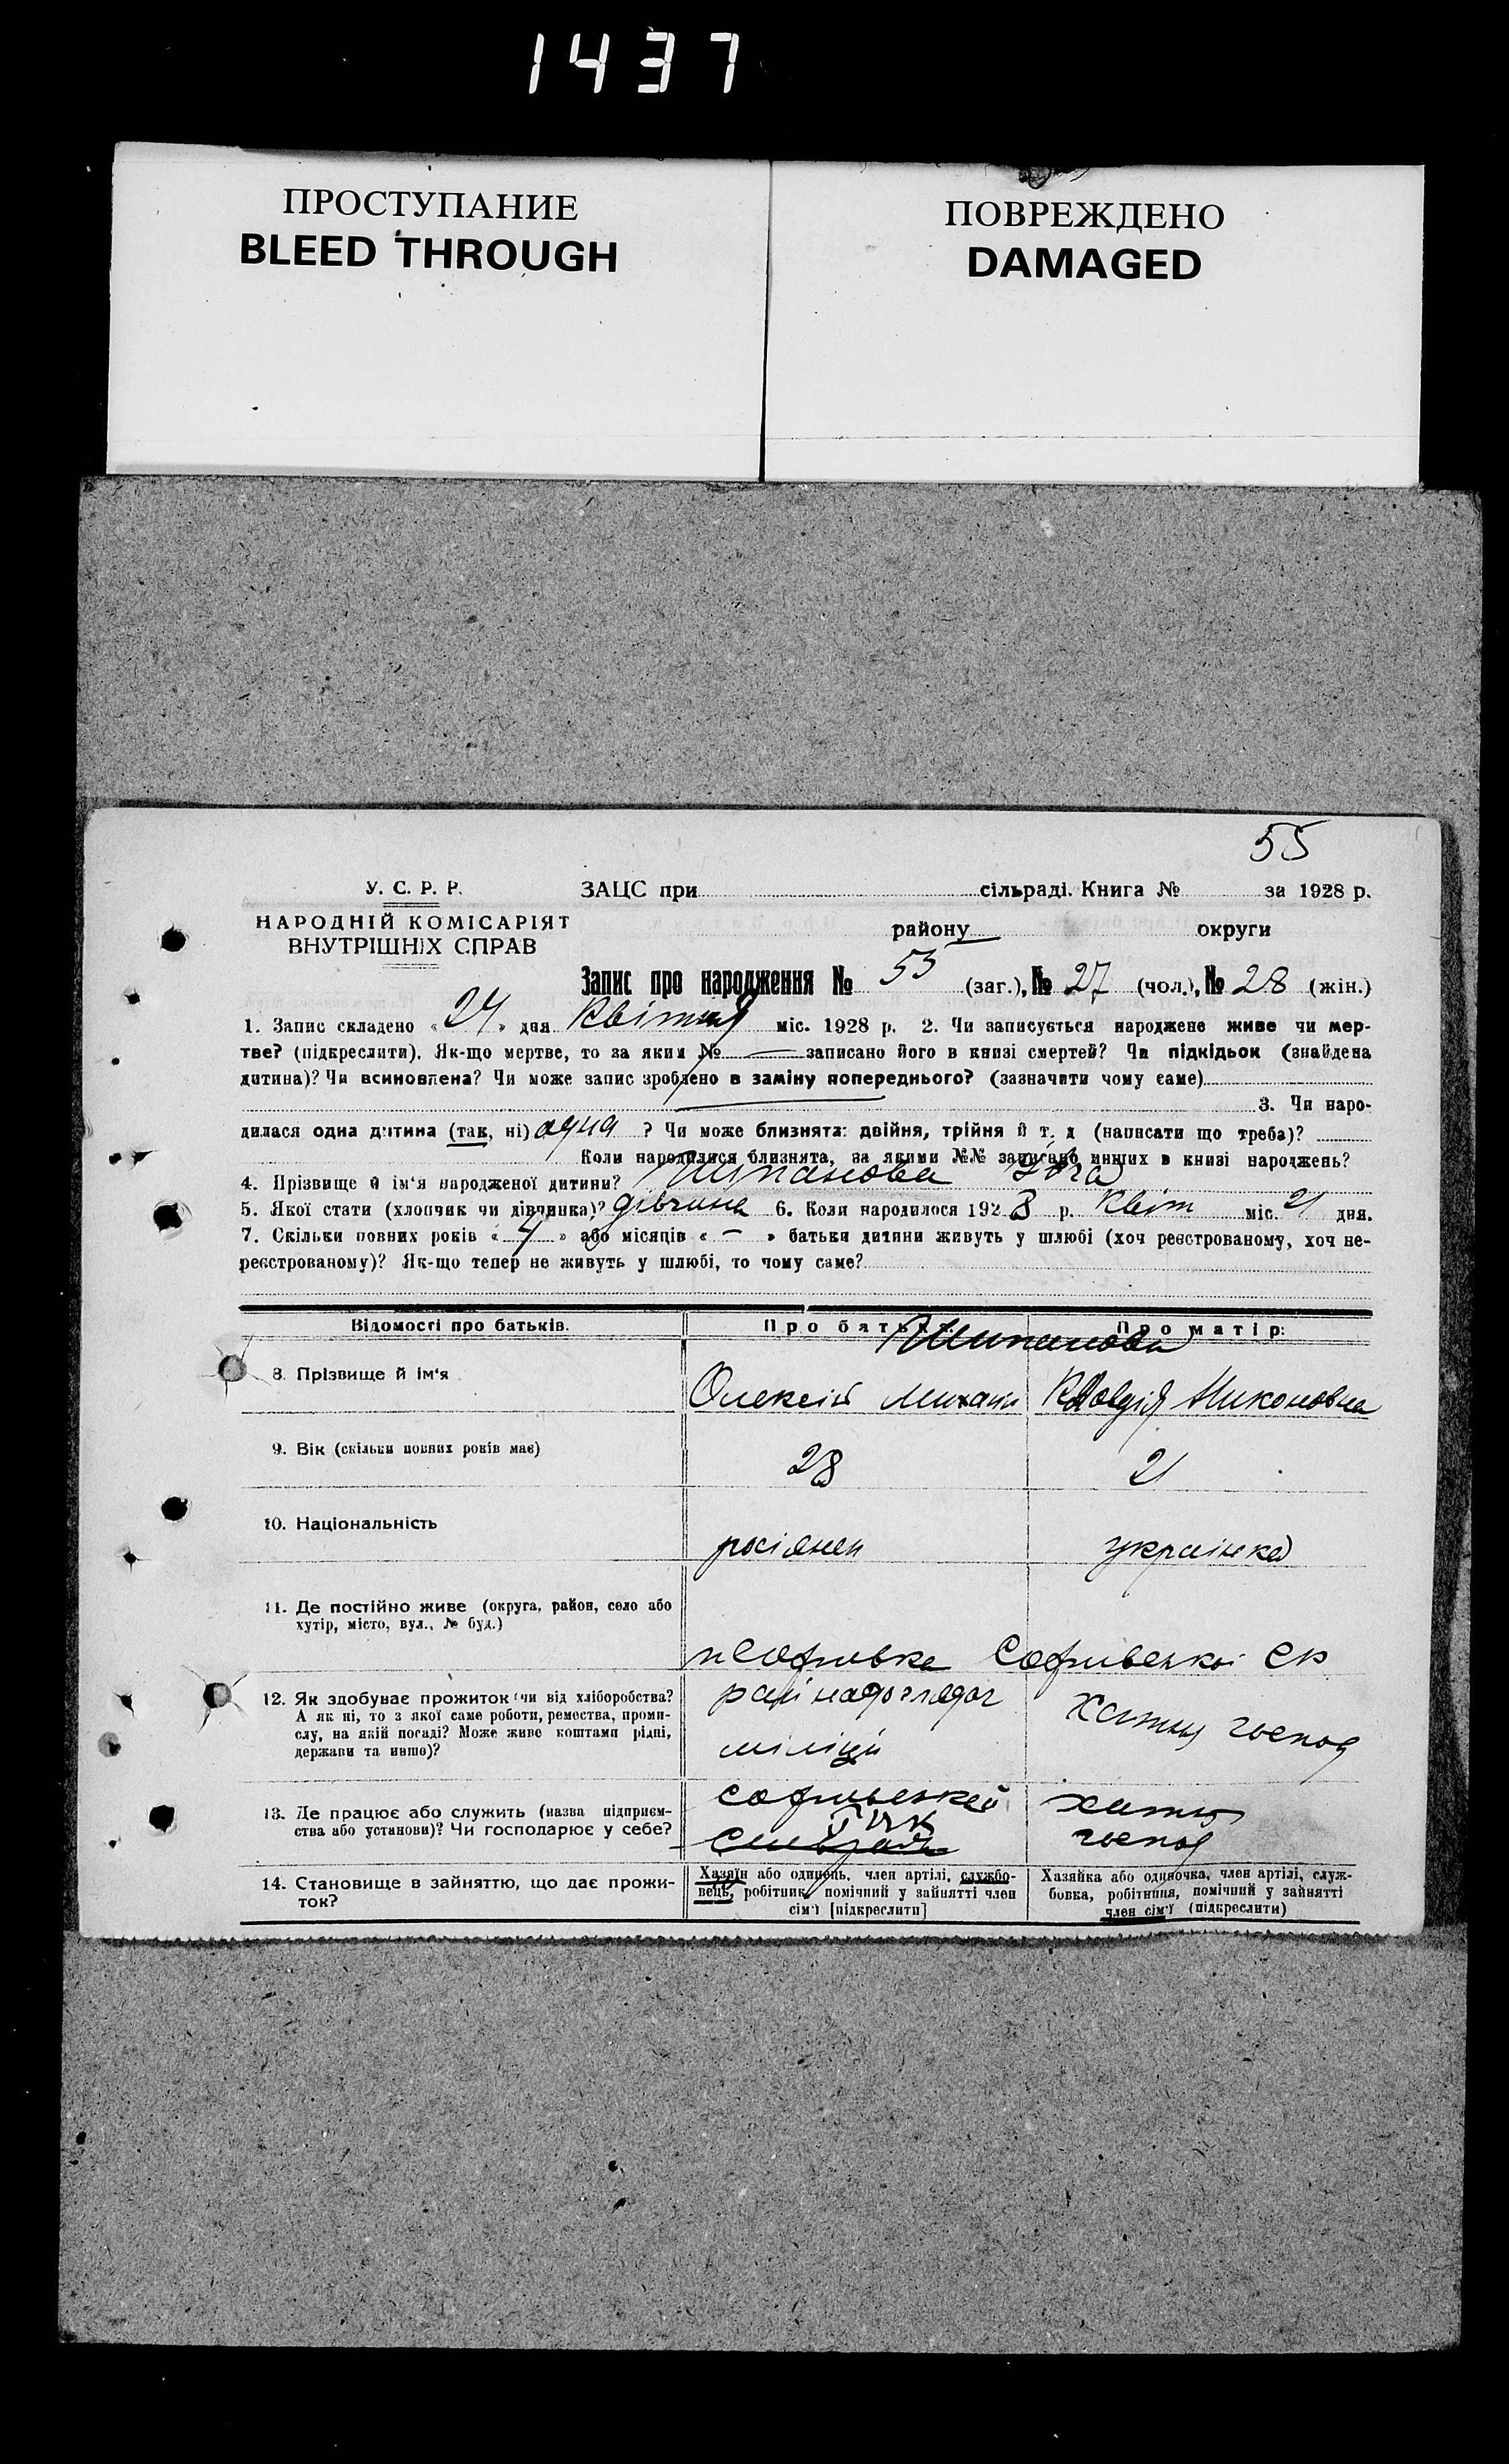 1437
ПРОСТУПАНИЕ
BLEED THROUGH
ПОВРЕЖДЕНО
DAMAGED
55
У. С. Р. Р.
НАРОДНІЙ КОМІСАРІЯТ
ВНУТРІШНІХ СПРАВ
ЗАЦС при сільраді. Книга № за 1928 р.
району округи
Запис про народження № 55 (заг.), № 27 (чол.), № 28 (жін.)
1. Запис складено « 24 » дня Квітня міс. 1928 р. 2. Чи записується народжене живе чи мер-
тве? (підкреслити). Як-що мертве, то за яким № — записано його в книзі смертей? Чи підкідьок (знайдена
дитина)? Чи всиновлена? Чи може запис зроблено в заміну попереднього? (зазначити чому саме)
3. Чи наро-
дилася одна дитина (так, ні) одна ? Чи може близнята: двійня, трійня й т. д (написати що треба)?
Коли народилися близнята, за якими №№ записано инших в книзі народжень?
4. Прізвище й ім'я народженої дитини? Шипанова
5. Якої стати (хлопчик чи дівчинка)? дівчина 6. Коли народилося 1928 р. Квіт міс. 21 дня.
7. Скільки повних років « 4 » або місяців « – » батьки дитини живуть у шлюбі (хоч реєстрованому, хоч не-
реєстрованому)? Як-що тепер не живуть у шлюбі, то чому саме?
Відомості про батьків. Про батька: Про матір:
Шипанови
8. Прізвище й ім'я Олексій Михайл Клавдія Никоновна
9. Вік (скільки повних років має) 28 21
10. Національність росіянен українка
11. Де постійно живе (округа, район, село або
хутір, місто, вул., № буд.)
Софиівка Софиівської
12. Як здобуває прожиток (чи від хліборобства?
А як ні, то з якої саме роботи, ремества, проми-
слу, на якій посаді? Може живе коштами рідні,
держави та инше)?
райнадоглядач
міліціи
Хатня господ
13. Де працює або служить (назва підприєм-
ства або установи)? Чи господарює у себе?
Софиівський
РИК
хатня
господ
14. Становище в зайняттю, що дає прожи-
ток?
Хазяїн або одинець, член артілі, службо-
вець, робітник, помічний у зайнятті член
сім'ї [підкреслити]
Хазяйка або одиночка, член артілі, служ-
бовка, робітниця, помічний у зайнятті
член сім'ї (підкреслити)